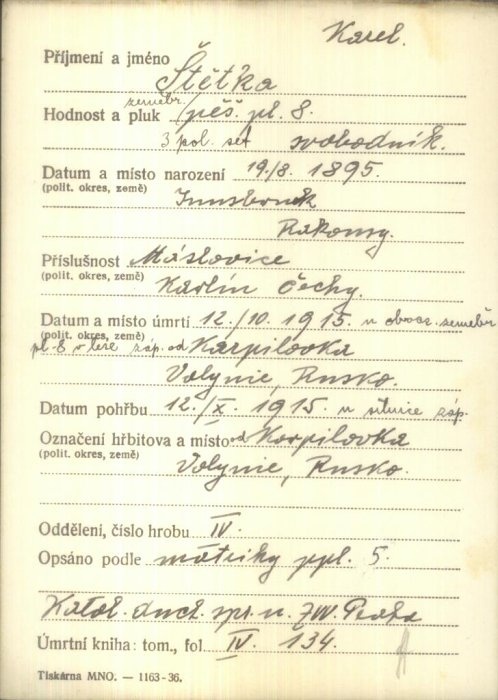 Karel.
Příjmení a jméno Štětka
Hodnost a pluk zeměbr. pěš. pl. 8.
3 pol. set. svobodník.
Datum a místo narození 19./8. 1895.
(polit. okres, země) Innsbruck
Rakousy.
Příslušnost Máslovice
(polit. okres, země) Karlín Čechy.
Datum a místo úmrtí 12./10. 1915. u obvaz. zeměbr.
(polit. okres, země)
pl. 8 v lese záp. od Karpilovka
Volynie, Rusko.
Datum pohřbu 12./X. 1915. u silnice záp.
Označení hřbitova a místo od Karpilovka
(polit. okres, země) Volynie, Rusko.
Oddělení, číslo hrobu IV.
Opsáno podle matriky ppl. 5.
Katol. duch. spr. u ZVV. Praha
Úmrtní kniha: tom., fol. IV. 134.
Tiskárna MNO. — 1163-36.